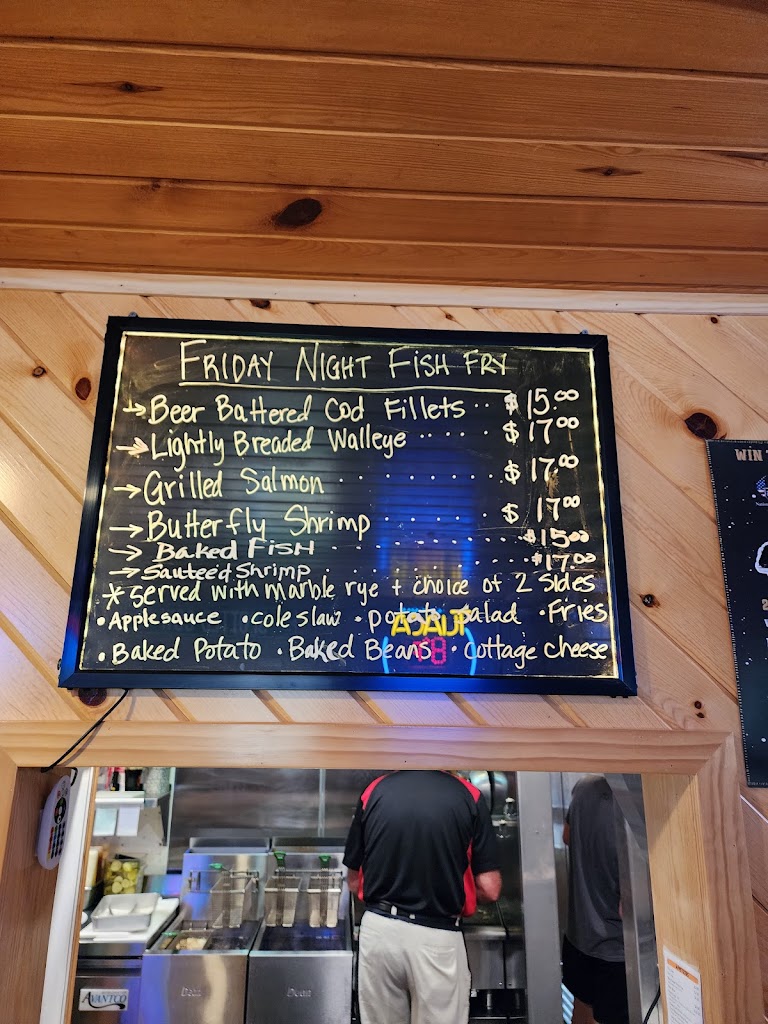 FRIDAY NIGHT FISH FRY
→ Beer Battered Cod Fillets .. $15.00
→ Lightly Breaded Walleye ..... $17.00
→ Grilled Salmon ........ $17.00
→ Butterfly Shrimp ...... $17.00
→ Baked Fish ......... $15.00
→ Sauteed Shrimp ......... $17.00
* Served with marble rye + choice of 2 Sides
• Applesauce • coleslaw • potato salad • Fries
• Baked Potato • Baked Beans • Cottage cheese
WIN
AVANTCO
Dean
Dean